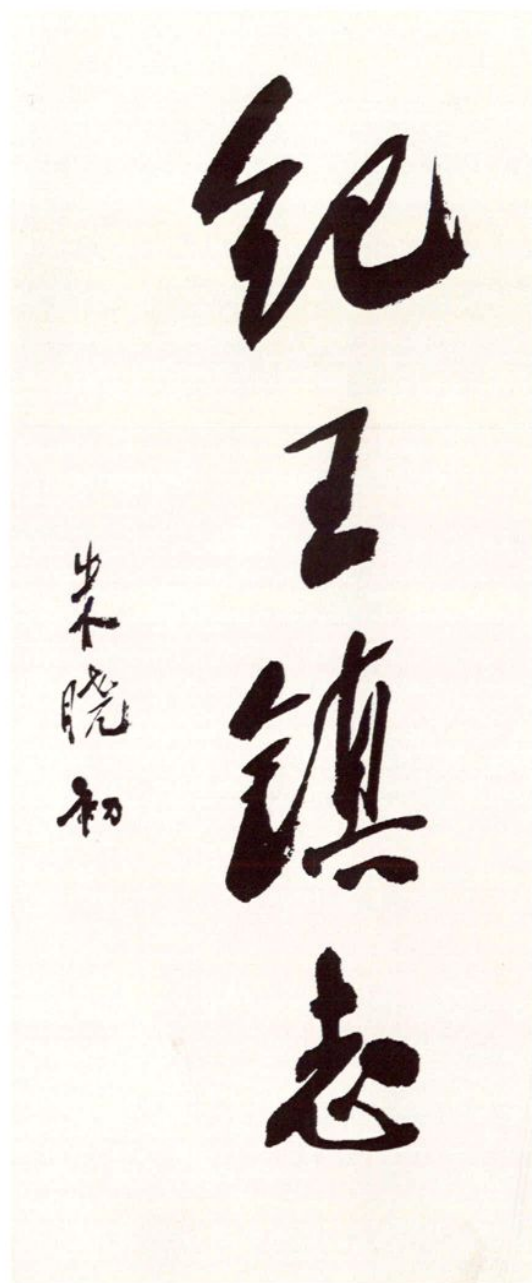 纪王镇志
柴晓初